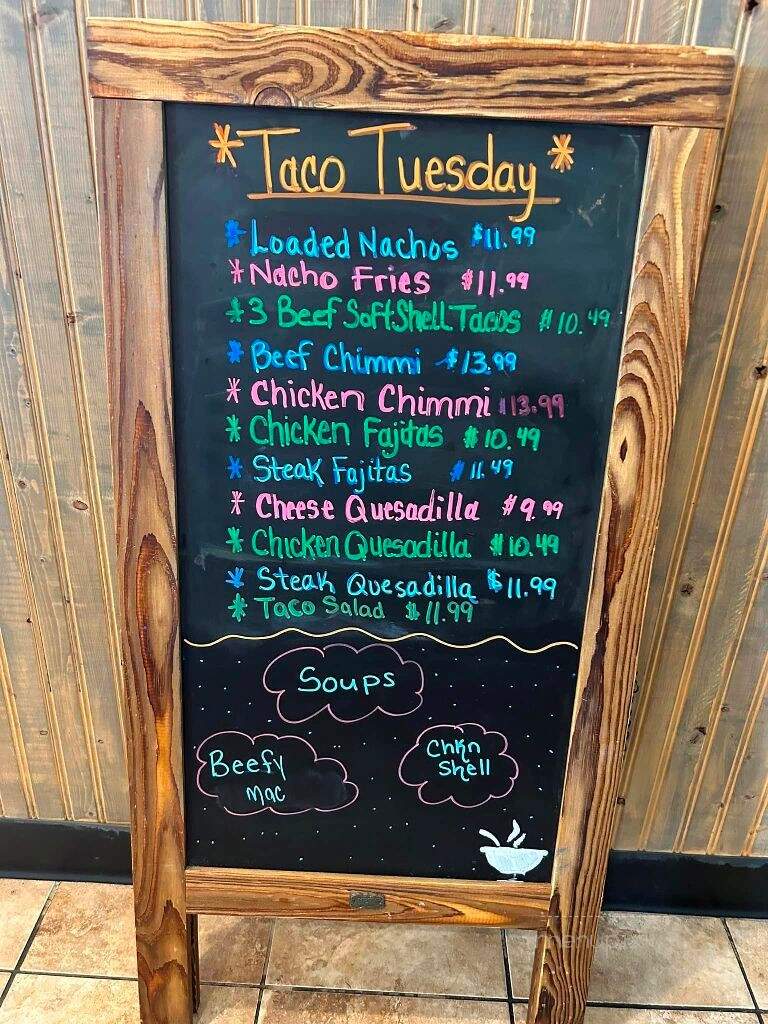 * Taco Tuesday *
* Loaded Nachos $11.99
* Nacho Fries $11.99
* 3 Beef Soft Shell Tacos $10.49
* Beef Chimmi $13.99
* Chicken Chimmi $13.99
* Chicken Fajitas $10.49
* Steak Fajitas $11.49
* Cheese Quesadilla $9.99
* Chicken Quesadilla $10.49
* Steak Quesadilla $11.99
* Taco Salad $11.99
Soups
Beefy
Mac
Chkn
Shell